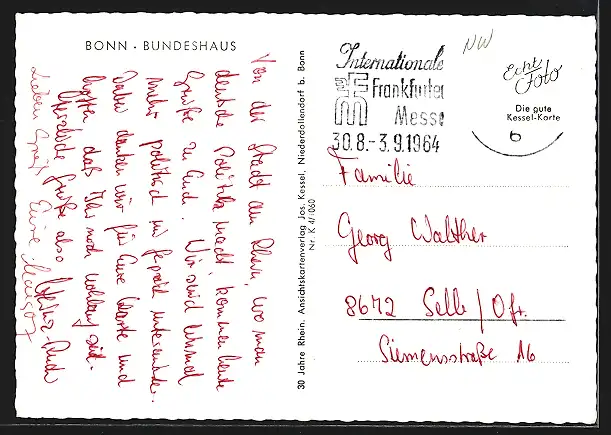 BONN · BUNDESHAUS
Von der Stadt am Rhein, wo man
deutsche Politik macht, kommen heute
Grüße zu Euch. Wir sind einmal
mehr politisch im Gespräch
Dabei danken wir für Eure Karte und
hoffen daß Ihr noch wohlauf seid.
Herzliche Grüße also
Lieben Gruß Eure
30 Jahre Rhein. Ansichtskartenverlag Jos. Kessel, Niederdollendorf b. Bonn
Nr. K 4/1060
Internationale
Frankfurter
Messe
30.8.-3.9.1964
NW
Echt
Foto
Die gute
Kessel-Karte
Familie
Georg Walther
8672 Selb/Ofr.
Siemensstraße 16